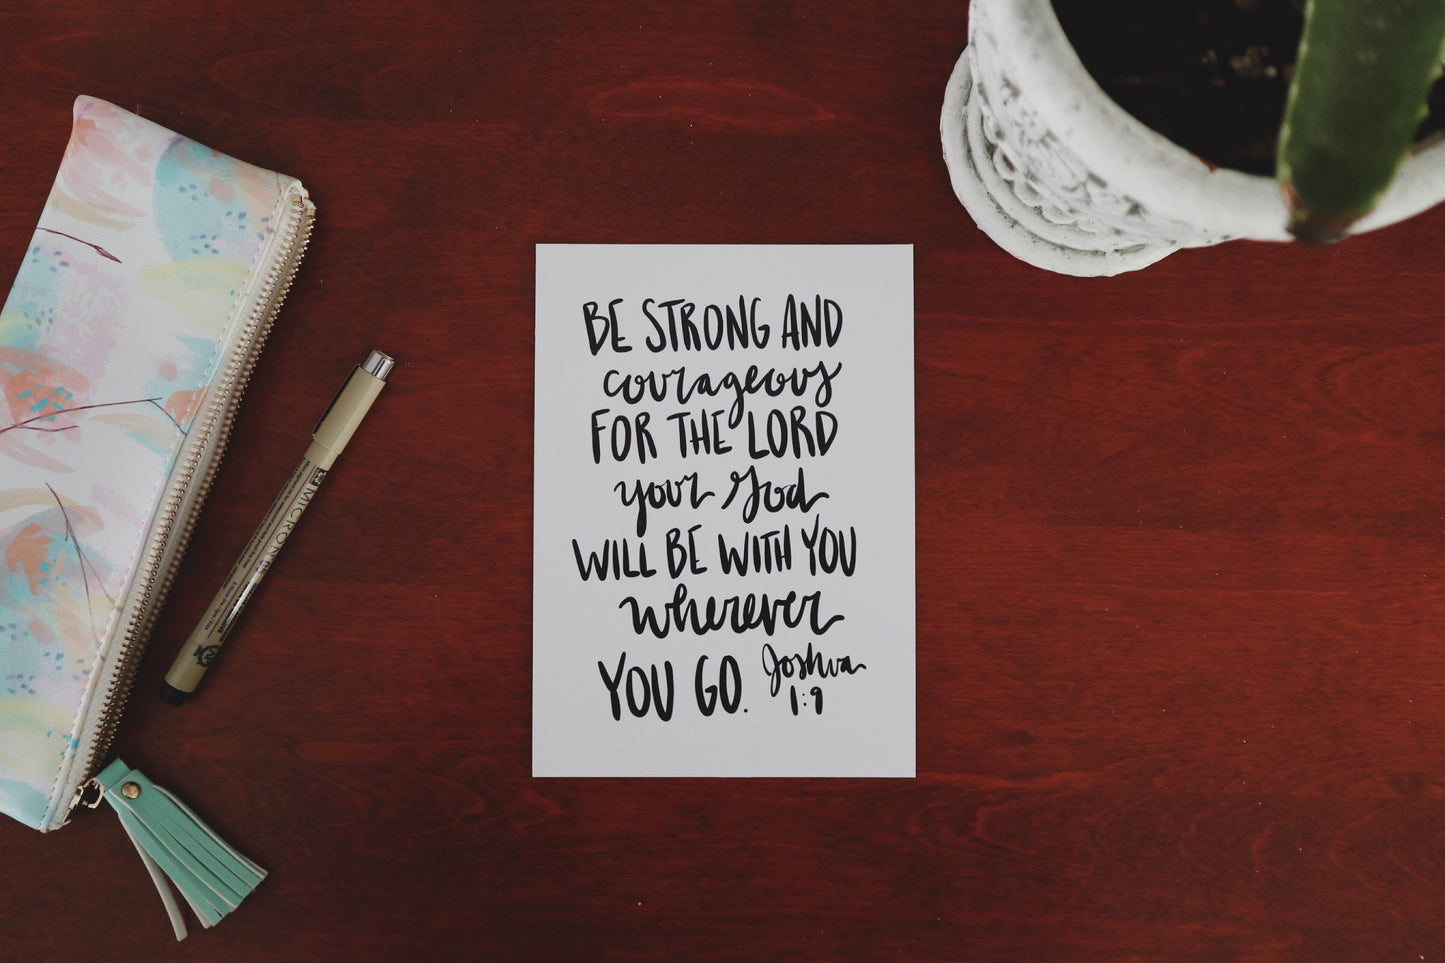 BE STRONG AND
courageous
FOR THE LORD
your God
WILL BE WITH YOU
wherever
YOU GO. Joshua
1:9
MICRON